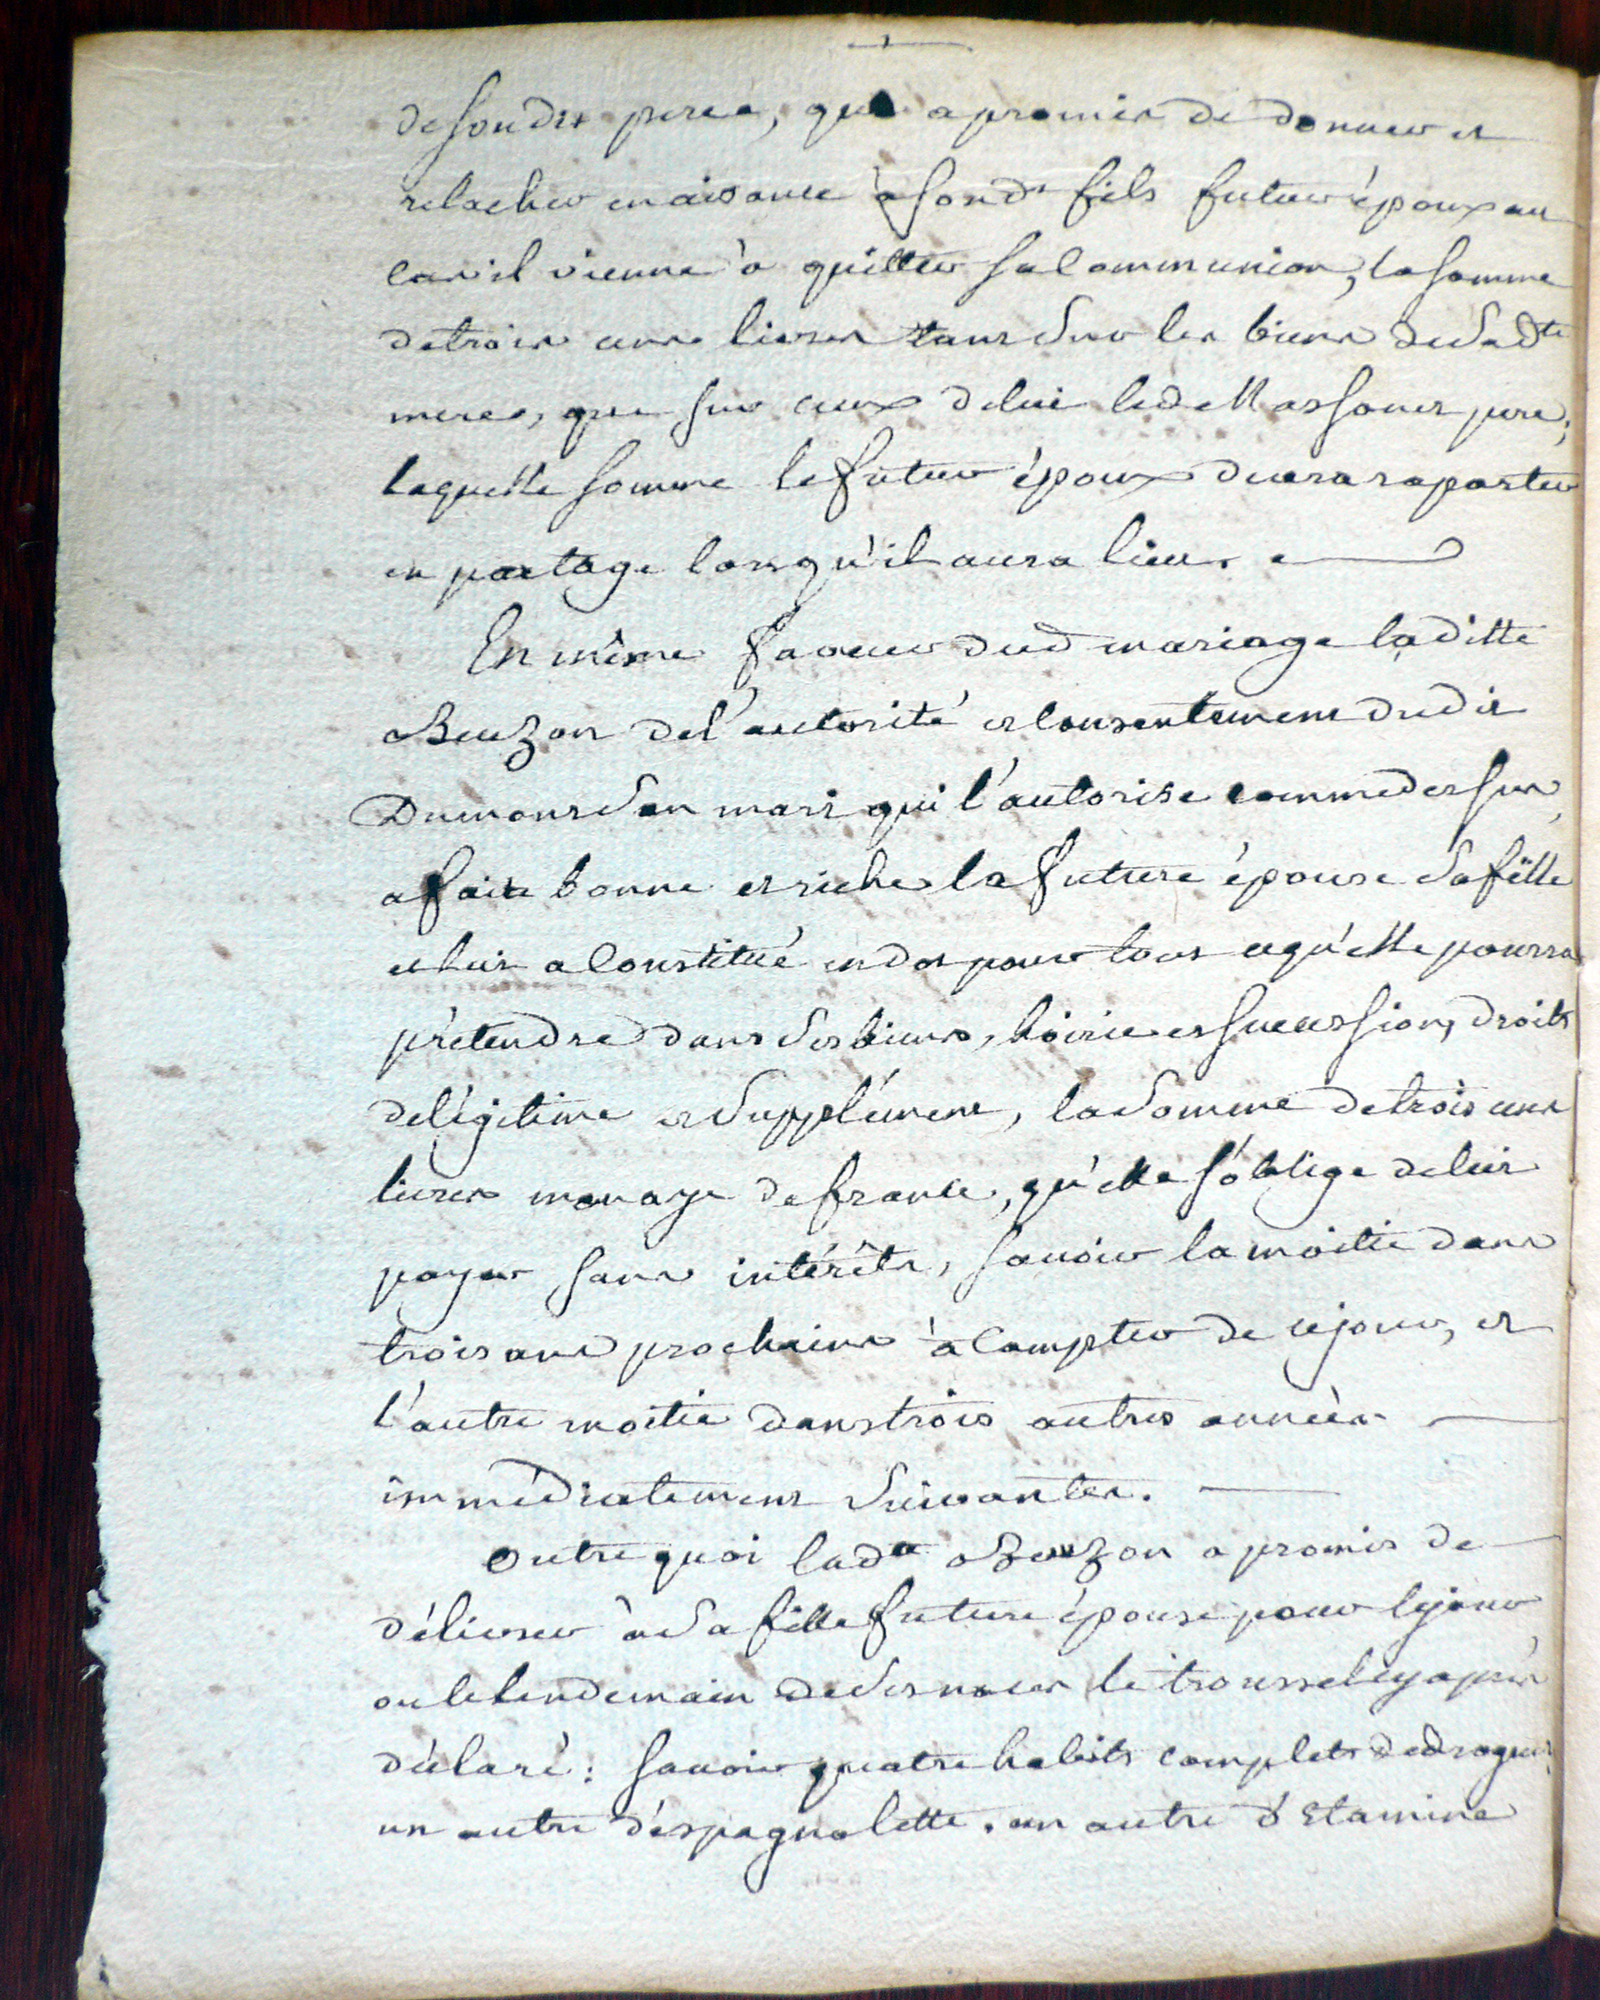 de son dit pere, qui a promis de donner et
relacher en aisance à sond.t fils futur époux au
cas il vienne à quitter sa communion, la somme
de trois cens livres tant sur les biens de sad.te
mere, que sur ceux de lui led. Massonet pere;
laquelle somme le futur époux devra raporter
en partage lorsqu'il aura lieu.
En même faveur dud mariage la ditte
Beuzon de l'autorité et consentement dudit
Dumont son mari qui l'autorise comme dessus,
a fait bonne et riche la future épouse sa fille
et lui a constitué en dot pour tout ce qu'elle pourra
prétendre dans ses biens, hoirie et succession, droits
de légitime et supplément, la somme de trois cens
livres monaye de france, qu'elle s'oblige de lui
payer sans intérêts, savoir la moitié dans
trois ans prochains à compter de ce jour, et
l'autre moitié dans trois autres années
immédiatement suivantes.
Outre quoi lad.te Beuzon a promis de
délivrer à sa fille future épouse pour le jour
ou le lendemain de ses noces le troussel cy après
déclaré: savoir quatre habits complets de droguet,
un autre d'espagnolette. un autre d'Etamine